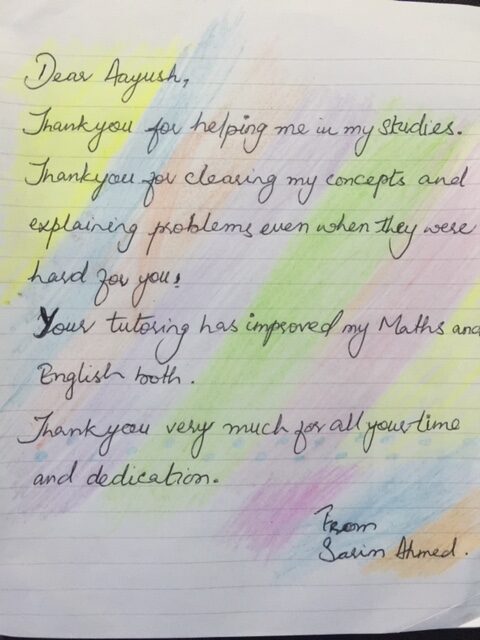 Dear Aayush,
Thankyou for helping me in my studies.
Thankyou for clearing my concepts and
explaining problems even when they were
hard for you.
Your tutoring has improved my Maths and
English both.
Thank you very much for all your time
and dedication.
From
Sarim Ahmed.